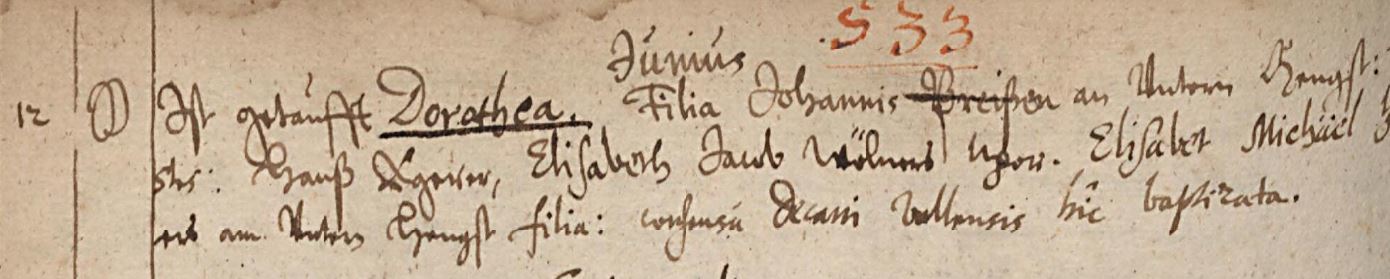 533
Junius
12 Ist getaufft Dorothea. Filia Johannis Preißen an Untern Hengst:
Hanß Elisabeth Jacob Wölners Uxor. Elisabet Michäel
am Untern Hengst filia: consensu Decani Vallensis hîc baptizata.